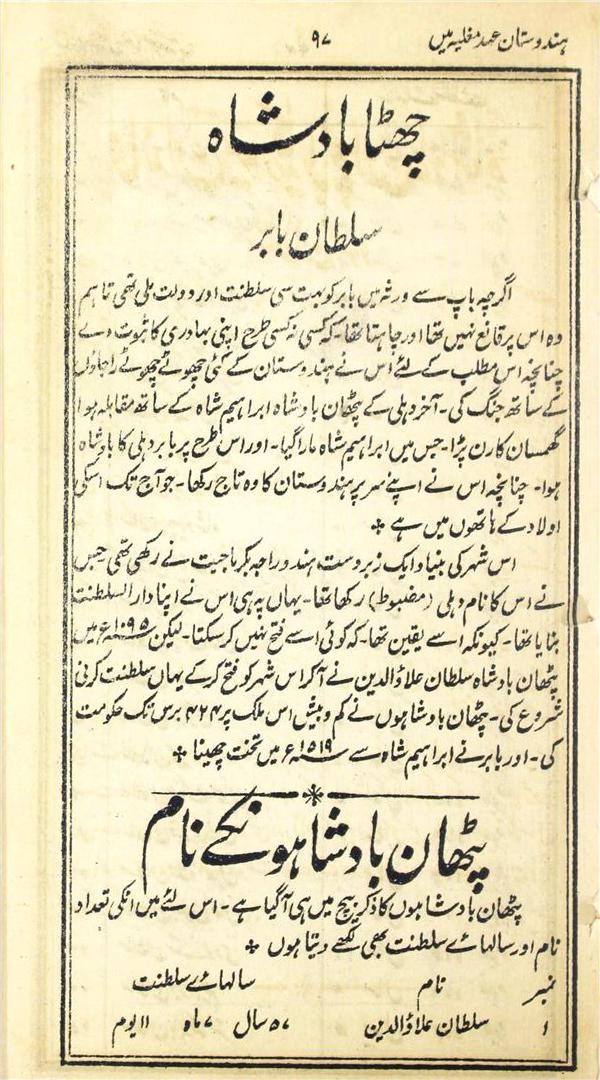 ہندوستان عہد مغلیہ میں
۹۷
چھٹا بادشاہ
سلطان بابر
اگرچہ باپ سے ورثہ میں بابر کو بہت سی سلطنت اور دولت ملی تھی تاہم
وہ اس پر قانع نہیں تھا اور چاہتا تھا۔ کہ کسی نہ کسی طرح اپنی بہادری کا ثبوت دے
چنانچہ اس مطلب کے لئے اس نے ہندوستان کے کئی چھوٹے چھوٹے راجاؤں
کے ساتھ جنگ کی۔ آخر دہلی کے پٹھان بادشاہ ابراہیم شاہ کے ساتھ مقابلہ ہوا
گھمسان کا رن پڑا۔ جس میں ابراہیم شاہ مارا گیا۔ اور اس طرح پر بابر دہلی کا بادشاہ
ہوا۔ چنانچہ اس نے اپنے سر پر ہندوستان کا وہ تاج رکھا۔ جو آج تک اسکی
اولاد کے ہاتھوں میں ہے ٭
اس شہر کی بنیاد ایک زبردست ہندو راجہ بکرماجیت نے رکھی تھی جس
نے اس کا نام دہلی (مضبوط) رکھا تھا۔ یہاں پہ ہی اس نے اپنا دار السلطنت
بنایا تھا۔ کیونکہ اسے یقین تھا۔ کہ کوئی اسے فتح نہیں کر سکتا۔ لیکن ۱۰۹۵ء میں
پٹھان بادشاہ سلطان علاؤالدین نے آ کر اس شہر کو فتح کر کے یہاں سلطنت کرنی
شروع کی۔ پٹھان بادشاہوں نے کم و بیش اس ملک پر ۴۲۴ برس تک حکومت
کی۔ اور بابر نے ابراہیم شاہ سے ۱۵۱۹ء میں تخت چھینا ٭
پٹھان بادشاہونکے نام
پٹھان بادشاہوں کا ذکر بیچ میں ہی آ گیا ہے۔ اس لئے میں انکی تعداد
نام اور سالہائے سلطنت بھی لکھے دیتا ہوں ٭
نمبر نام سالہائے سلطنت
۱ سلطان علاؤالدین ۵۷ سال ۷ ماہ ۱۱ یوم